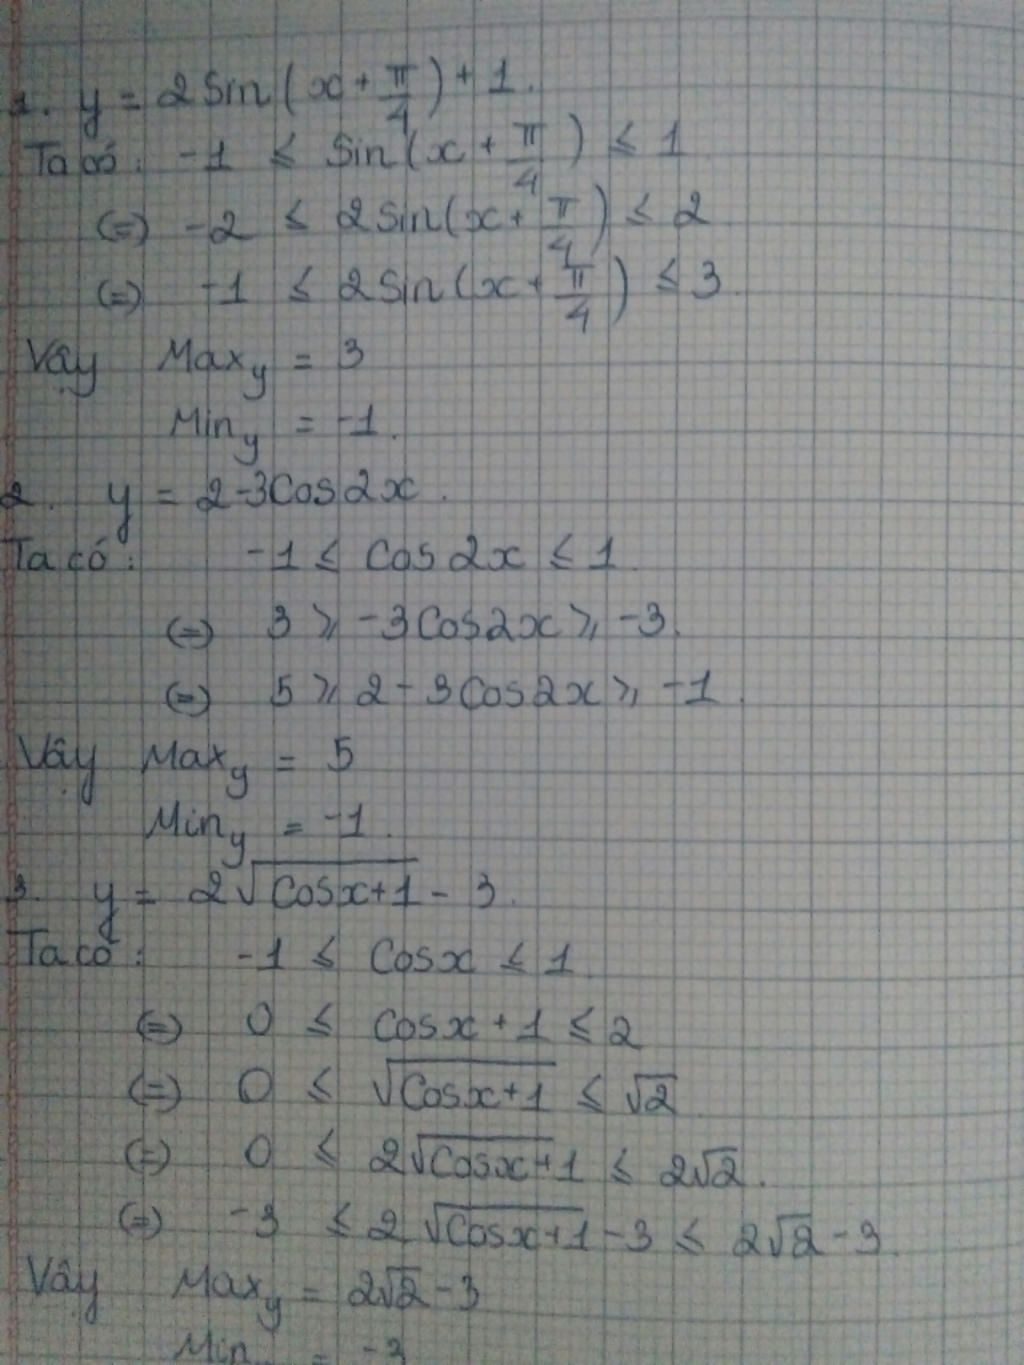 1. y = 2Sin(x + π/4) + 1.
Ta có: -1 ≤ Sin(x + π/4) ≤ 1
(=) -2 ≤ 2Sin(x + π/4) ≤ 2
(=) -1 ≤ 2Sin(x + π/4) ≤ 3.
Vậy Max y = 3
Min y = -1.
2. y = 2-3Cos2x.
Ta có: -1 ≤ Cos2x ≤ 1.
(=) 3 ≥ -3Cos2x ≥ -3.
(=) 5 ≥ 2-3Cos2x ≥ -1.
Vậy Max y = 5
Min y = -1.
3. y = 2√(Cosx+1) - 3.
Ta có: -1 ≤ Cosx ≤ 1.
(=) 0 ≤ Cosx + 1 ≤ 2
(=) 0 ≤ √(Cosx+1) ≤ √2.
(=) 0 ≤ 2√(Cosx+1) ≤ 2√2.
(=) -3 ≤ 2√(Cosx+1) - 3 ≤ 2√2 - 3.
Vậy Max y = 2√2 - 3
Min = -3